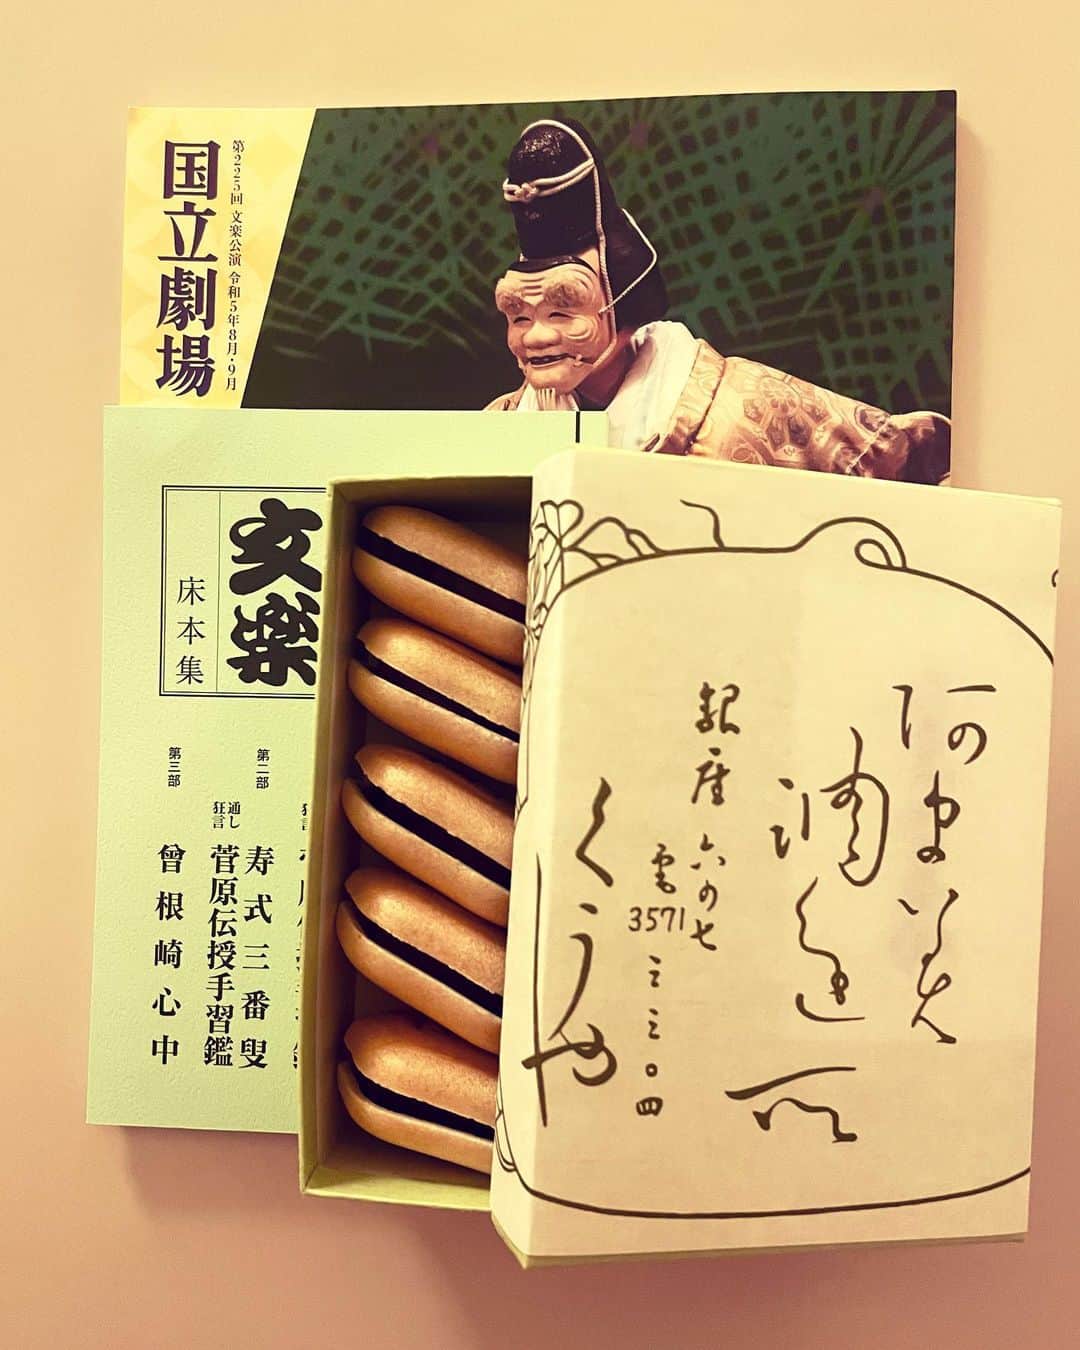 国立劇場
第225回 文楽公演 令和5年8月・9月
文楽
床本集
第二部
寿式三番叟
通し狂言
菅原伝授手習鑑
第三部
曾根崎心中
銀座 六の七
電3571 三三〇四
くうや